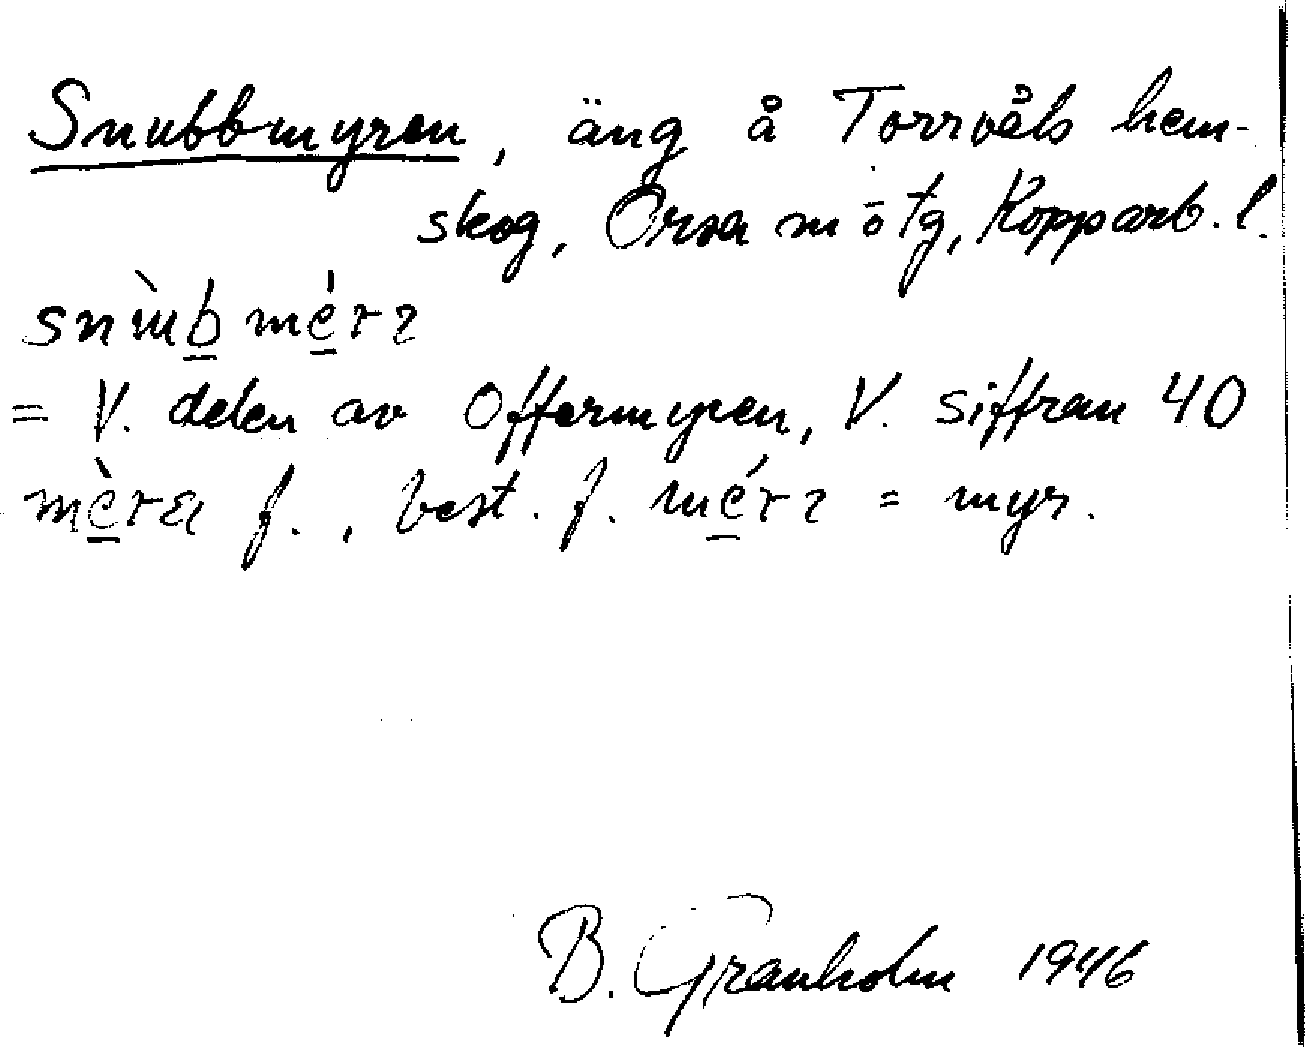 Snubbmyren, äng å Torrvåls hem-
skog, Orsa sn o tg, Kopparb. l.
= V. delen av Offermyren, V. siffran 40
f., best. f. = myr.
B. Granholm 1946